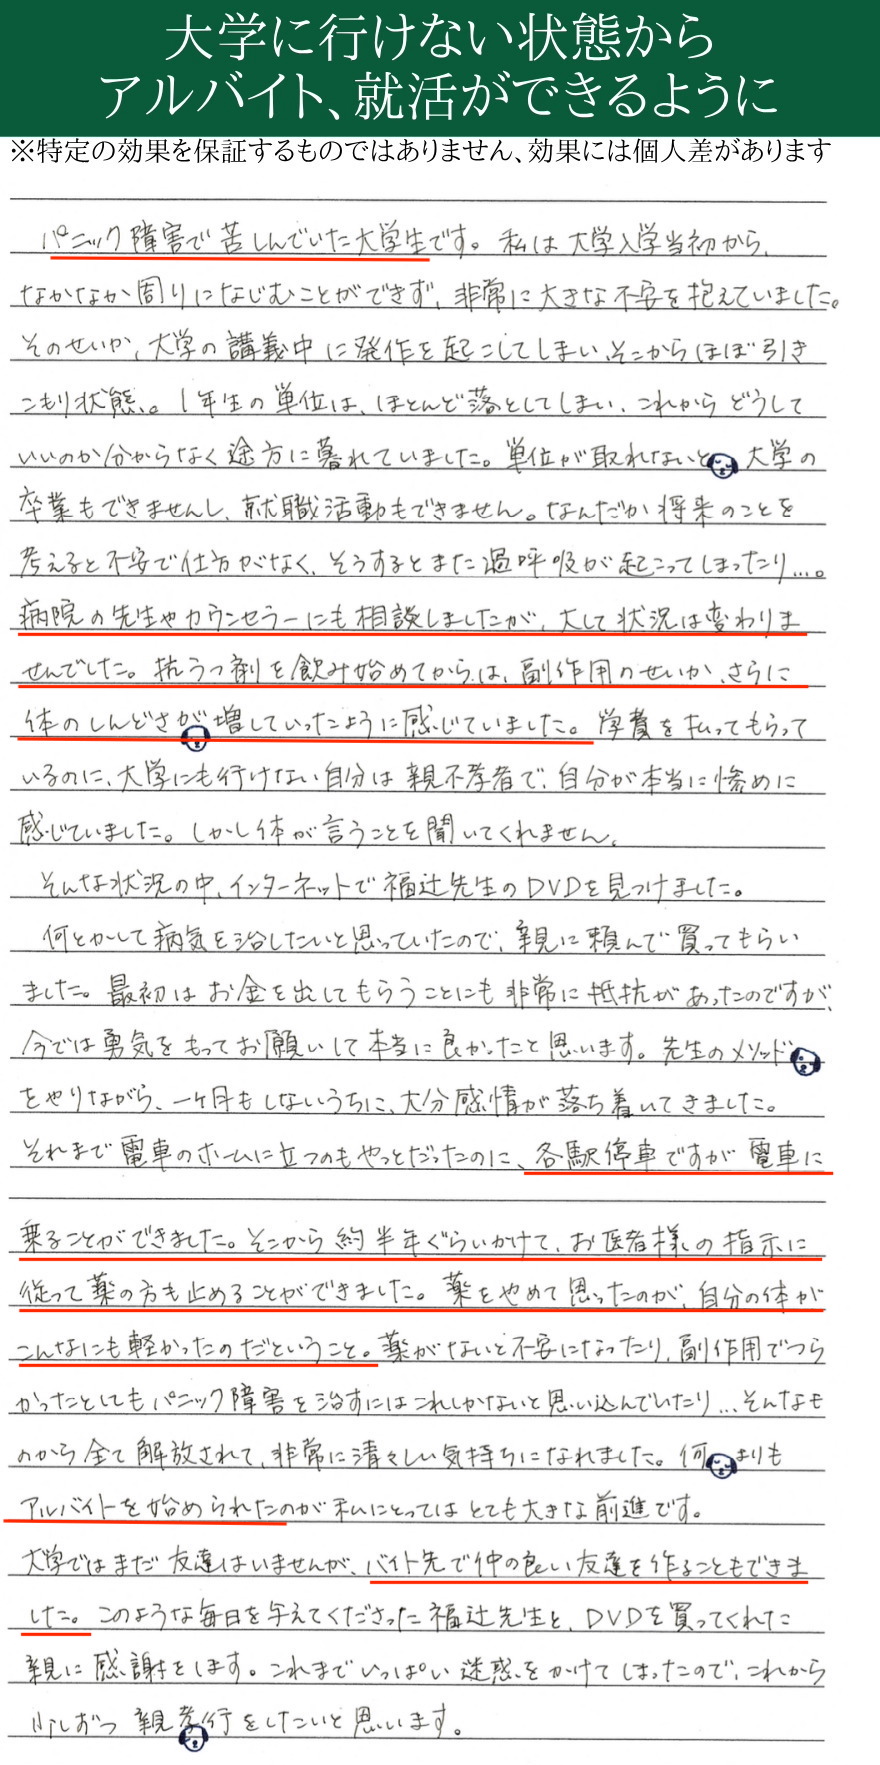 大学に行けない状態から
アルバイト、就活ができるように
※特定の効果を保証するものではありません、効果には個人差があります
パニック障害で苦しんでいた大学生です。私は大学入学当初から、
なかなか周りになじむことができず、非常に大きな不安を抱えていました。
そのせいか、大学の講義中に発作を起こしてしまい、そこからほぼ引き
こもり状態、。1年生の単位は、ほとんど落としてしまい、これからどうして
いいのか分からなく途方に暮れていました。単位が取れないと大学の
卒業もできませんし、就職活動もできません。なんだか将来のことを
考えると不安で仕方がなく、そうするとまた過呼吸が起こってしまったり…。
病院の先生やカウンセラーにも相談しましたが、大して状況は変わりま
せんでした。抗うつ剤を飲み始めてからは、副作用のせいか、さらに
体のしんどさが増していったように感じていました。学費を払ってもらって
いるのに、大学にも行けない自分は親不孝者で、自分が本当に惨めに
感じていました。しかし体が言うことを聞いてくれません。
そんな状況の中、インターネットで福辻先生のDVDを見つけました。
何とかして病気を治したいと思っていたので、親に頼んで買ってもらい
ました。最初はお金を出してもらうことにも非常に抵抗があったのですが、
今では勇気をもってお願いして本当に良かったと思います。先生のメソッド
をやりながら、一ヶ月もしないうちに、大分感情が落ち着いてきました。
それまで電車のホームに立つのもやっとだったのに、各駅停車ですが電車に
乗ることができました。そこから約半年ぐらいかけて、お医者様の指示に
従って薬の方も止めることができました。薬をやめて思ったのが、自分の体が
こんなにも軽かったのだということ。薬がないと不安になったり、副作用でつら
かったとしてもパニック障害を治すにはこれしかないと思い込んでいたり…そんなも
のから全て解放されて、非常に清々しい気持ちになれました。何よりも
アルバイトを始められたのが私にとってはとても大きな前進です。
大学ではまだ友達はいませんが、バイト先で仲の良い友達を作ることもできま
した。このような毎日を与えてくださった福辻先生と、DVDを買ってくれた
親に感謝をします。これまでいっぱい迷惑をかけてしまったので、これから
少しずつ親孝行をしたいと思います。